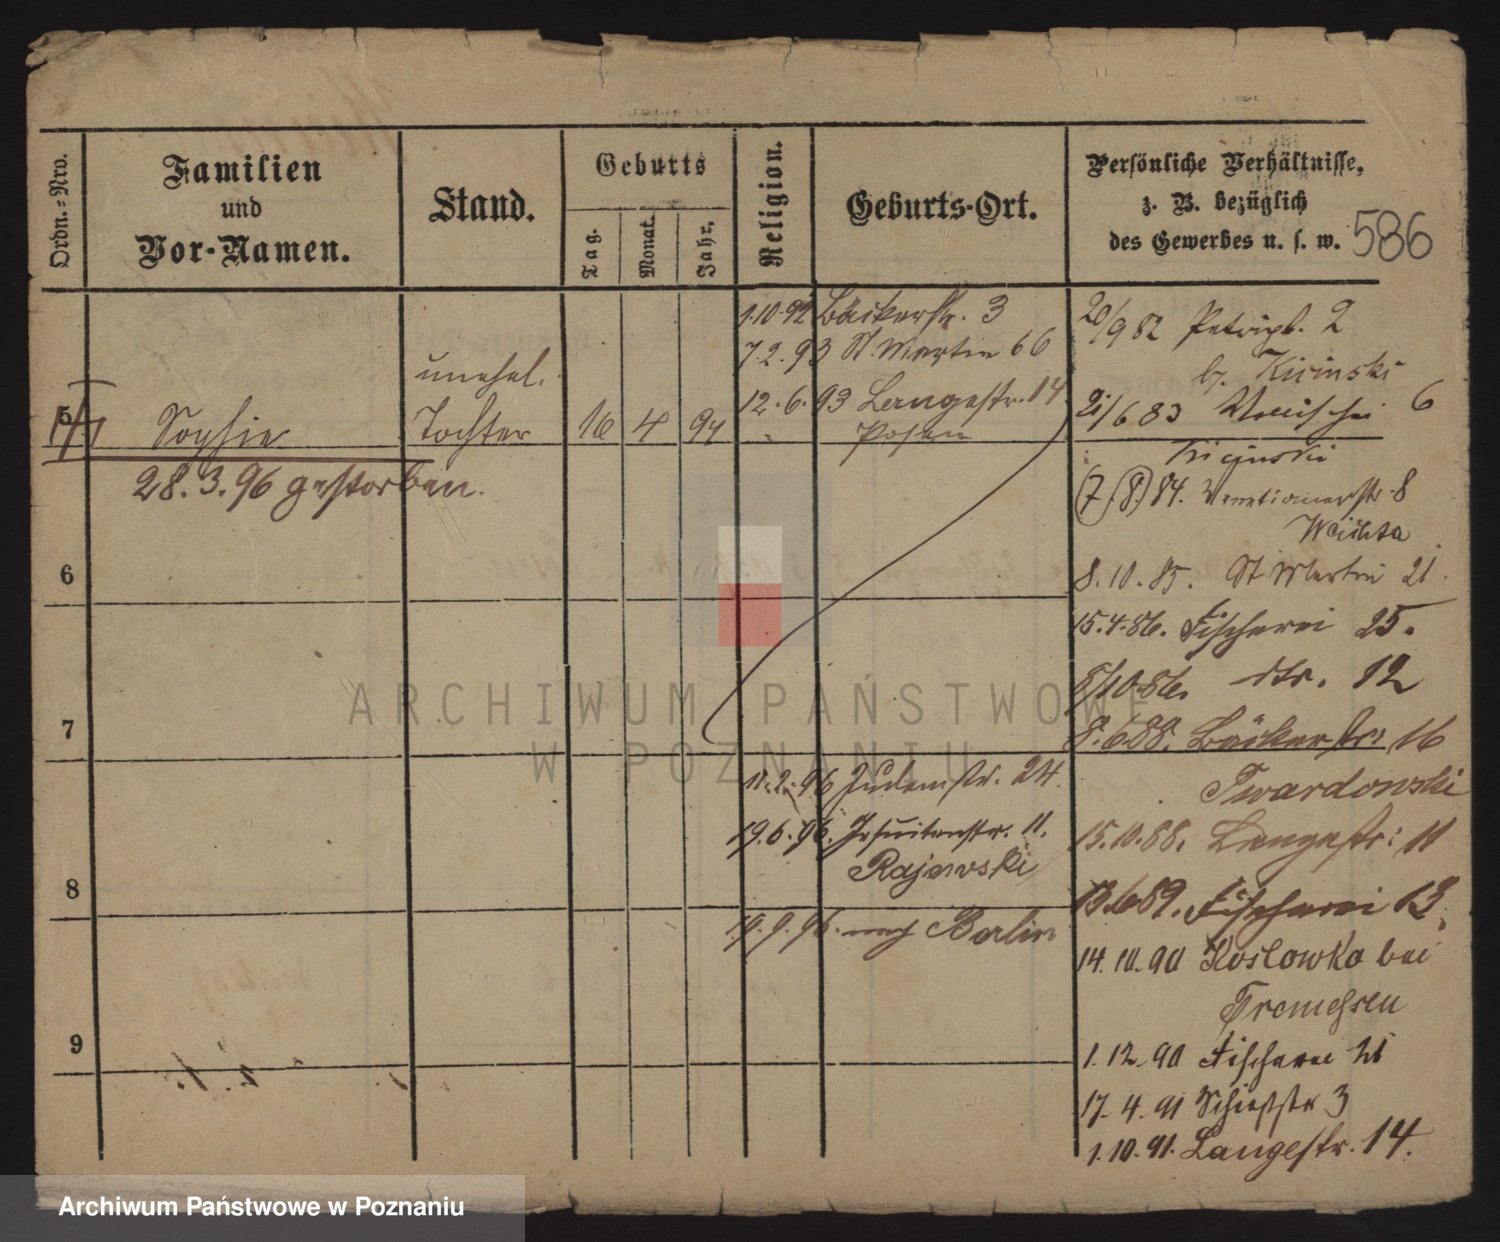 Ordn.-Nro.
Familien
und
Vor-Namen.
Stand.
Geburts
Tag.
Monat.
Jahr.
Religion.
Geburts-Ort.
Persönliche Verhältnisse,
z. B. bezüglich
des Gewerbes u. s. w.
586
5
Sophie
unehel.
Tochter
16 4 94
28.3.96 gestorben.
6
7
8
9
1.10.92 Bäckerstr. 3
7.2.93 St Martin 66
12.6.93 Langestr. 14
Posen
11.2.96 Judenstr. 24.
19.6.96. Jesuitenstr. 11.
Rajewski
19.9.96. nach Berlin
20/9 82 Petripl. 2
b. Kicinski
21/6 83 6
Kicinski
(7/8) 84. Venetianerstr. 8
8.10.85. St Martin 21.
15.4.86. Fischerei 25.
8/10.86. dto. 12
8.6.88. Bäckerstr: 16
Twardowski
15.10.88. Langestr: 11
13.6.89. Fischerei 13
14.10.90 Koslowko bei
Tremessen
1.12.90 Fischerei 21
17.4.91 Schiesstr 3
1.10.91. Langestr. 14.
ARCHIWUM PAŃSTWOWE
W POZNANIU
Archiwum Państwowe w Poznaniu